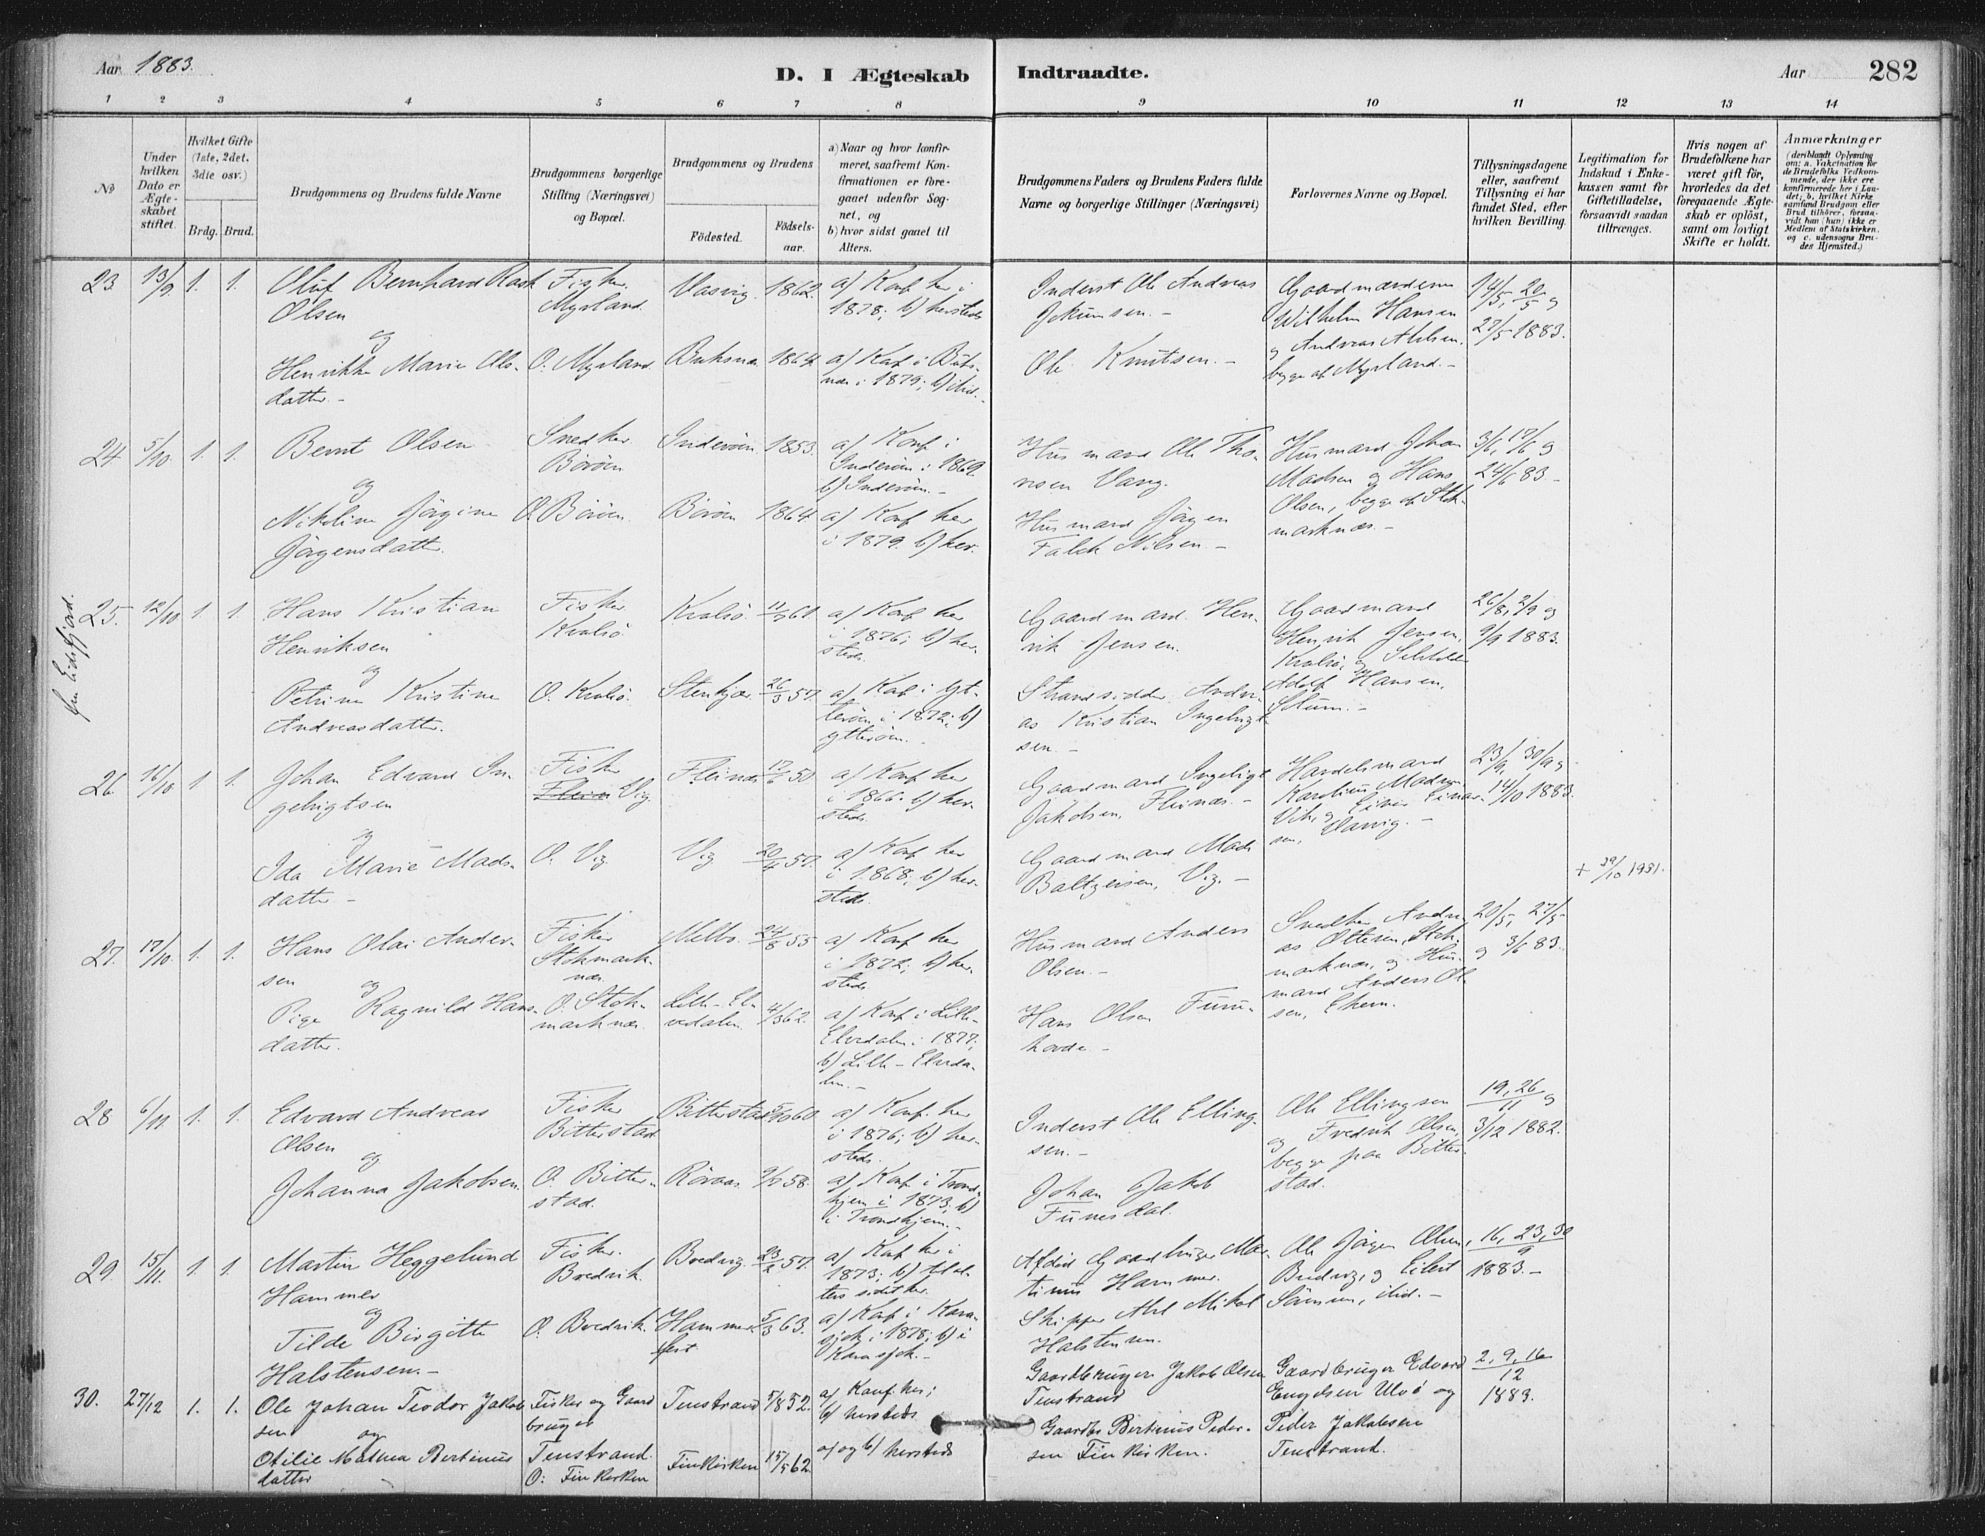 Aar 1883.
D. I Ægteskab Indtraadte.
Aar 282
1 2 3 4 5 6 7 8 9 10 11 12 13 14
No
Under hvilken Dato er Ægteskabet stiftet.
Hvilket Gifte (1ste, 2det, 3die osv.)
Brdg. Brud.
Brudgommens og Brudens fulde Navne
Brudgommens borgerlige Stilling (Næringsvei) og Bopæl.
Brudgommens og Brudens
Fødested.
Fødselsaar.
a) Naar og hvor konfirmeret, saafremt Konfirmationen er foregaaet udenfor Sognet, og
b) hvor sidst gaaet til Alters.
Brudgommens Faders og Brudens Faders fulde Navne og borgerlige Stillinger (Næringsvei)
Forlovernes Navne og Bopæl.
Tillysningsdagene eller, saafremt Tillysning ei har fundet Sted, efter hvilken Bevilling.
Legitimation for Indskud i Enkekassen samt for Giftetilladelse, forsaavidt saadan tiltrænges.
Hvis nogen af Brudefolkene har været gift før, hvorledes da det foregaaende Ægteskab er opløst, samt om lovligt Skifte er holdt.
Anmærkninger
(deriblandt Oplysning om: a. Vakcination for de Brudefolks Vedkommende, der ikke ere konfirmerede her i Landet; b, hvilket Kirkesamfund Brudgom eller Brud tilhører, forsaavidt han (hun) ikke er Medlem af Statskirken, og c. udensogns Brudes Hjemsted.)
23 13/9 1. 1. Oluf Bernhard Rask Olsen
Fisker, Myrland. Vasvig. 1862. a) Konf. her i 1878; b) hersteds
Inderst Ole Andreas Jokumsen. -
Gaardmændene Wilhelm Hansen og Andreas Ahlsen, begge af Myrland. -
14/5, 20/5 og 27/5 1883.
og
Henrikke Marie Olsdatter. -
O. Myrland. Buksnæs 1864. a) Konf. i Buksnæs i 1879; b) ibid. -
Ole Knutsen. -
24. 5/10. 1. 1. Bernt Olsen
Snedker Börøen Inderøen. 1853. a) Konf. i Inderøen i 1869. b) Inderøen. -
Husmand Ole Thonesen Vang.
Husmand Johan Madsen og Hans Olsen, begge af Stokmarknæs. -
3/6, 17/6 og 24/6 83. -
og
Nikoline Jørgine Jørgensdatter.
O. Börøen. Börøen 1864. a) Konf. her i 1879. b) her.
Husmand Jørgen Falch Nilsen. -
fra Eidsfjord.
25. 12/10 1. 1. Hans Kristian Henriksen
Fisker Kvalsö. Kvalsö. a) Konf. her i 1876; b) hersteds.
Gaardmand Henrik Jensen.
Gaardmand Henrik Jensen, Kvalsö, og Adolf Hansen,
26/8, 2/9 og 9/9 1883.
og
Petrine Kristine Andreasdatter.
O. Kvalsö. Stenkjær 26/3 57. a) Konf. i Ytterøen i 1872; b) Ytterøen.
Strandsidder Andreas Kristian Ingebrigtsen. -
26. 16/10 1. 1. Johan Edvard Ingebrigtsen
Fisker Vig. Fleinæs 17/6 51. a) Konf. her i 1866. b) hersteds.
Gaardmand Ingebrigt Jakobsen, Fleinæs. -
Handelsmand Karolius Madsen Vik, og Einarsen, Vasvig. -
23/9, 30/9 og 14/10 1883.
og
Ida Marie Madsdatter. -
O. Vig Vig 20/4 57. a) Konf. her i 1868; b) hersteds.
Gaardmand Mads Baltzersen, Vig. -
+ 29/10 1931.
27. 17/10 1. 1. Hans Olai Andersen
Fisker Stokmarknæs Melbo. 24/8 55 a) Konf. her i 1872; b) hersteds
Husmand Anders Olsen. -
Snedker Andreas Ottesen, Stokmarknæs, og Husmand Anders Olsen, Ekern.
20/5, 27/5 og 3/6 83.
og
Pige Ragnild Hansdatter.
O. Stokmarknæs. Lille-Elvedalen. 4/3 62. a) Konf. i Lille-Elvedalen i 1877; b) Lille-Elvedalen. -
Hans Olsen Furuhovde. -
28 6/11 1. 1. Edvard Andreas Olsen
Fisker Bitterstad Bitterstad 5/10 60. a) Konf. her i 1876; b) hersteds.
Inderst Ole Ellingsen. -
Ole Ellingsen og Fredrik Olsen, begge paa Bitterstad.
19, 26/11 og 3/12 1882.
og
Johanna Jakobsen.
O. Bitterstad. Röraas. 58. a) Konf. i Trondhjem i 1873; b) i Trondhjem. -
Johan Jakob Funesdal.
29. 15/11. 1. 1. Martin Heggelund Hammer
Fisker. Bredvik. Bredvig. 23/2 57. a) Konf. her i 1873; b) Alters sidst her.
Afdöd Gaardbruger Martinus Hammer.
Ole Jörgen Olsen, Bredvig, og Eilert Sörensen, ibid. -
16, 23, 30/9 1883. -
og
Tilde Birgitte Halstensen. -
O. Bredvik. Hammerfest 5/3 63. a) Konf. i Karasjok i 1878; b) i Karasjok. -
Skipper Abel Mikal Halstensen.
30. 27/12 1. 1. Ole Johan Teodor Jakobsen
Fisker og Gaardbruger Tenstrand Tenstrand 5/8 52. a) Konf. her; b) hersteds
Gaardbruger Jakob Olsen Tenstrand
Gaardbruger Edvard Engelsen Ulvö og Peder Jakobsen Tenstrand.
2, 9, 16/12 1883.
og
Otilie Matea Bertinusdatter
O: Finkirken Finkirken 15/5 62 a) og b) hersteds
Gaardbr Bertinus Pedersen Finkirken.